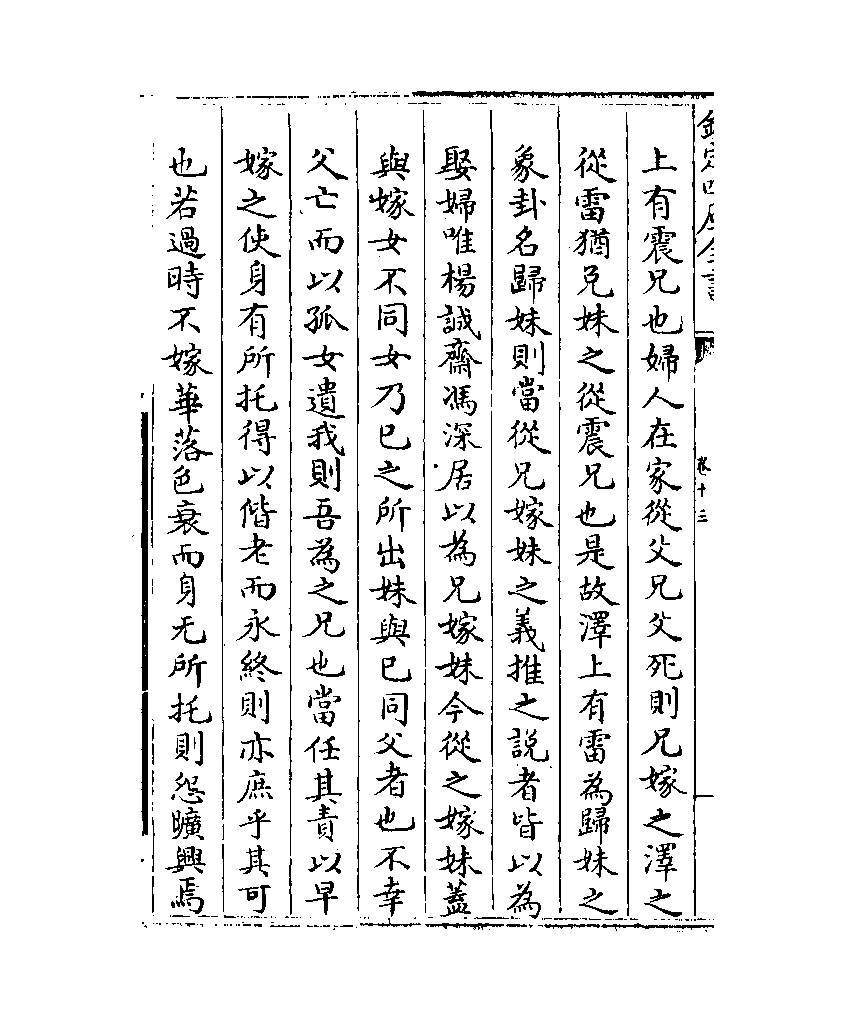 上有震兄也婦人在家從父兄父死則兄嫁之澤之
從雷猶兑妹之從震兄也是故澤上有雷為歸妹之
象卦名歸妹則當從兄嫁妹之義推之説者皆以為
娶婦唯楊誠齋馮深居以為兄嫁妹今從之嫁妹蓋
與嫁女不同女乃已之所出妹與已同父者也不幸
父亡而以孤女遺我則吾為之兄也當任其責以早
嫁之使身有所托得以偕老而永終則亦庶乎其可
也若過時不嫁華落色衰而身无所托則怨曠興焉
卷十三